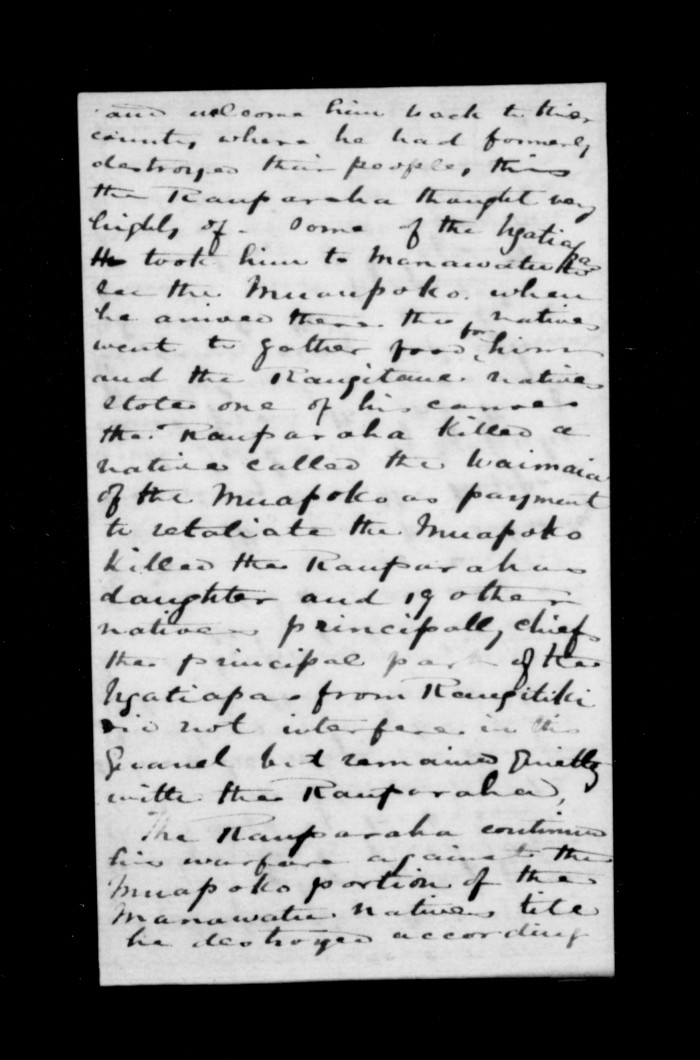 and welcome him back to thier
country where he had formerly
destroyed their people, this
the Rauparaha thought very
highly of. Some of the Ngatiapa
took him to Manawatu to
see the Muaupoko. when
he arrived there the natives
went to gather food for him
and the Rangitane natives
stole one of his canoes
the Rauparaha killed a
native called the Waimaia
of the Muapoko as payment
to retaliate the Muapoko
killed the Rauparahas
daughter and 19 other
natives principally chiefs
the principal part of the
Ngatiapas from Rangitiki
did not interfere in this
Quarrel but remained Quietly
with the Rauparaha,
The Rauparaha continued
his warfare against the
Muapoko portion of the
Manawatu natives till
he destroyed according